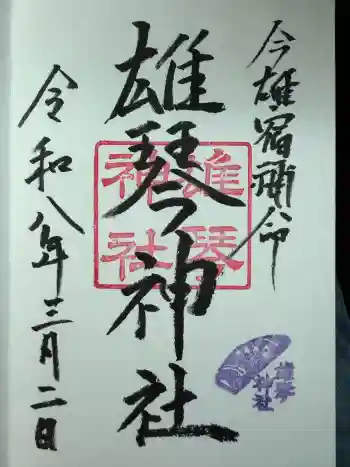 今雄宿祢命
雄琴神社
雄琴神社
令和八年三月二日
雄琴
神社